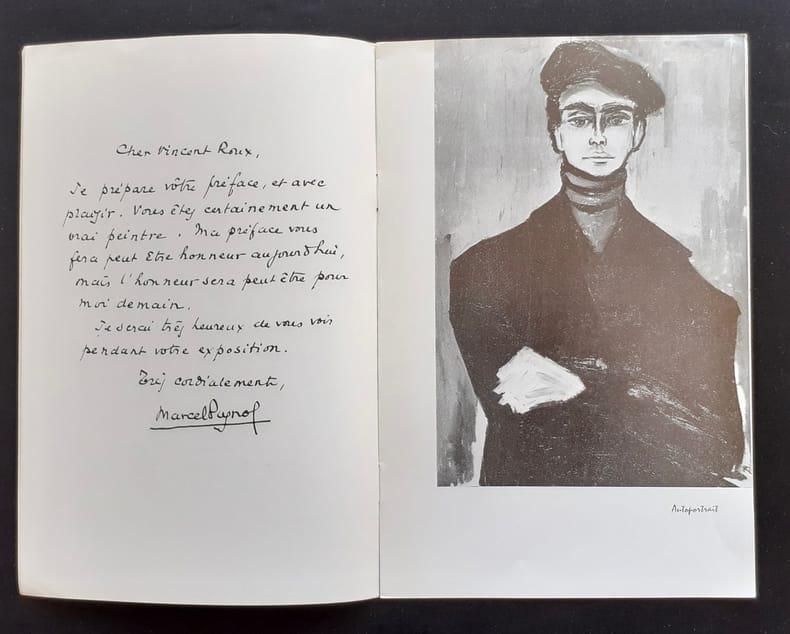 Cher Vincent Roux,
Je prépare vôtre préface, et avec
plaisir. Vous êtes certainement un
vrai peintre. Ma préface vous
fera peut être honneur aujourd'hui,
mais l'honneur sera peut être pour
moi demain.
Je serai très heureux de vous voir
pendant votre exposition.
Très cordialement,
Marcel Pagnol
Autoportrait